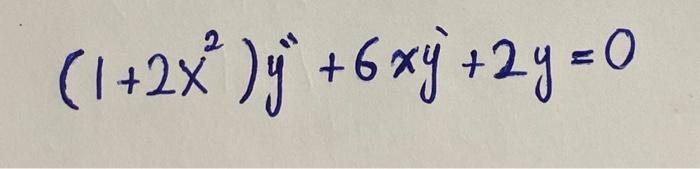 (1+2x²)y'' +6xy' +2y=0